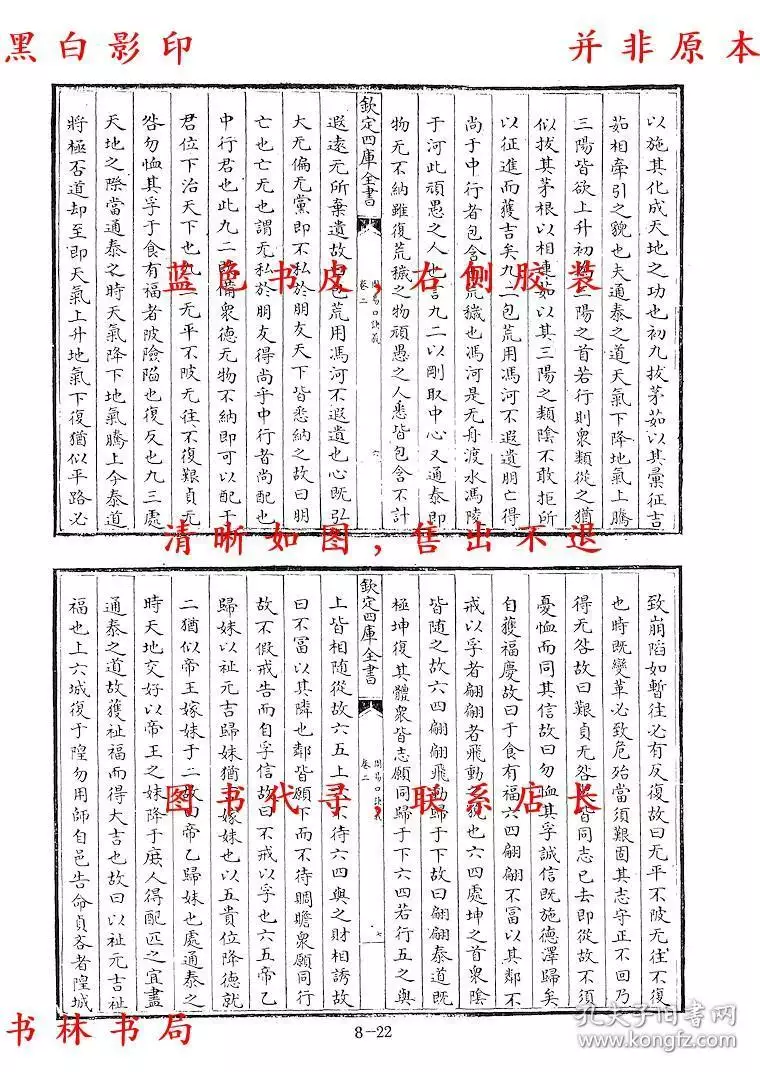 黑白影印
并非原本
以施其化成天地之功也初九拔茅茹以其彙征吉
茹相牽引之貌也夫通泰之道天氣下降地氣上騰
三陽皆欲上升初 三陽之首若行則衆類從之猶
似拔其茅根以相連茹以其三陽之類陰不敢拒所
以征進而獲吉矣九二包荒用馮河不遐遺朋亡得
尚于中行者包含 荒穢也馮河是无舟渡水馮陵
于河此頑愚之人也 言九二以剛取中心又通泰即
物无不納雖復荒穢之物頑愚之人悉皆包含不計
欽定四庫全書
周易口訣義
卷二
六
遐遠无所棄遺故 包荒用馮河不遐遺也心既弘
大无偏无黨即不私於朋友天下皆悉納之故曰朋
亡也亡无也謂无私於朋友得尚乎中行者尚配也
中行君也此九二既備衆德无物不納即可以配于
君位下治天下也九三无平不陂无往不復艱貞无
咎勿恤其孚于食有福者陂險陷也復反也九三處
天地之際當通泰之時天氣降下地氣騰上今泰道
將極否道却至即天氣上升地氣下復猶似平路必
蓝色书皮，右侧胶装
清晰如图，售出不退
致崩陷如暫往必有反復故曰无平不陂无往不復
也時既變革必致危殆當須艱固其志守正不回乃
得无咎故曰艱貞无咎 皆同志已去即從故不須
憂恤而同其信故曰勿恤其孚誠信既施德澤歸矣
自獲福慶故曰于食有福六四翩翩不富以其鄰不
戒以孚者翩翩者飛動 貌也六四處坤之首衆陰
皆隨之故六四翩翩飛動歸于下故曰翩翩泰道既
極坤復其體衆皆志願同歸于下六四若行五之與
欽定四庫全書
周易口訣義
卷二
七
上皆相隨從故六五上 不待六四與之財相誘故
曰不富以其隣也鄰皆願下而不待賙贍衆願同行
故不假戒告而自孚信故曰不戒以孚也六五帝乙
歸妹以祉元吉歸妹猶 嫁妹也以五貴位降德就
二猶似帝王嫁妹于二故曰帝乙歸妹也處通泰之
時天地交好以帝王之妹降于庶人得配匹之宜盡
通泰之道故獲祉福而得大吉也故曰以祉元吉祉
福也上六城復于隍勿用師自邑告命貞吝者隍城
图书代寻，联系店长
书林书局
8-22
孔夫子旧书网
www.kongfz.com